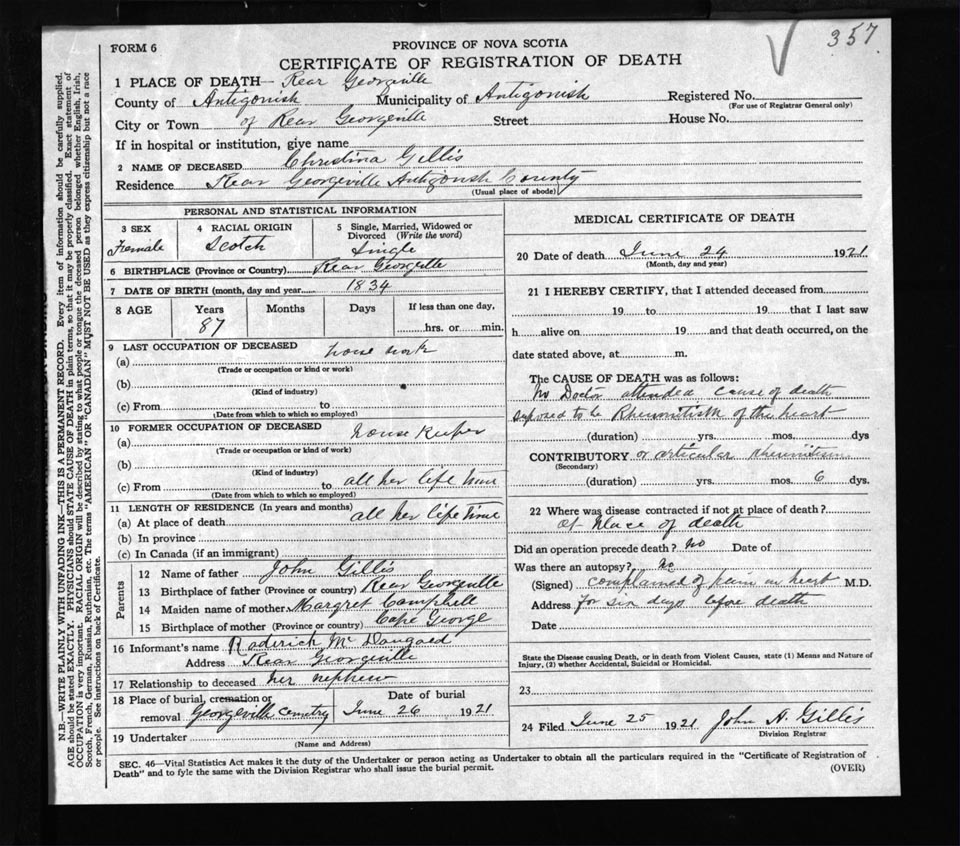 357
FORM 6
PROVINCE OF NOVA SCOTIA
CERTIFICATE OF REGISTRATION OF DEATH
1 PLACE OF DEATH— Rear Georgeville
County of Antigonish Municipality of Antigonish Registered No.
(For use of Registrar General only)
City or Town of Rear Georgeville Street House No.
If in hospital or institution, give name
2 NAME OF DECEASED Christina Gillis
Residence Rear Georgeville Antigonish County
(Usual place of abode)
PERSONAL AND STATISTICAL INFORMATION
3 SEX 4 RACIAL ORIGIN 5 Single, Married, Widowed or
Divorced (Write the word)
Female Scotch Single
6 BIRTHPLACE (Province or Country) Rear Georgeville
7 DATE OF BIRTH (month, day and year) 1834
8 AGE Years Months Days If less than one day,
87 hrs. or min.
9 LAST OCCUPATION OF DECEASED house work
(a)
(Trade or occupation or kind of work)
(b)
(Kind of industry)
(c) From to
(Date from which to which so employed)
10 FORMER OCCUPATION OF DECEASED house Keeper
(a)
(Trade or occupation or kind of work)
(b)
(Kind of industry)
(c) From to all her life time
(Date from which to which so employed)
11 LENGTH OF RESIDENCE (In years and months) all her life Time
(a) At place of death
(b) In province
(c) In Canada (if an immigrant)
Parents
12 Name of father John Gillis
13 Birthplace of father (Province or country) Rear Georgeville
14 Maiden name of mother Margret Campbell
15 Birthplace of mother (Province or country) Cape George
16 Informant's name Roderick Mc Dougaed
Address Rear Georgeville
17 Relationship to deceased her nephew
18 Place of burial, cremation or Date of burial
removal Georgeville cemetry June 26 1921
19 Undertaker
(Name and Address)
MEDICAL CERTIFICATE OF DEATH
20 Date of death June 24 1921
(Month, day and year)
21 I HEREBY CERTIFY, that I attended deceased from
19 to 19 that I last saw
h alive on 19 and that death occurred, on the
date stated above, at m.
The CAUSE OF DEATH was as follows:
No Doctor attended cause of death
suposed to be Rheumitism of the heart
(duration) yrs. mos. dys
CONTRIBUTORY or articular rheumitism
(Secondary)
(duration) yrs. mos. 6 dys.
22 Where was disease contracted if not at place of death?
at place of death
Did an operation precede death? No Date of
Was there an autopsy? No
(Signed) complained of pain in heart M.D.
Address for six days before death
Date
State the Disease causing Death, or in death from Violent Causes, state (1) Means and Nature of
Injury, (2) whether Accidental, Suicidal or Homicidal.
23
24 Filed June 25 1921 John A. Gillis
Division Registrar
SEC. 46—Vital Statistics Act makes it the duty of the Undertaker or person acting as Undertaker to obtain all the particulars required in the "Certificate of Registration of
Death" and to fyle the same with the Division Registrar who shall issue the burial permit. (OVER)
N.B.—WRITE PLAINLY WITH UNFADING INK—THIS IS A PERMANENT RECORD. Every item of information should be carefully supplied.
AGE should be stated EXACTLY. PHYSICIANS should STATE CAUSE OF DEATH in plain terms, so that it may be properly classified. Exact statement of
OCCUPATION is very important. RACIAL ORIGIN will be described by stating to what people or tongue the deceased person belonged whether English, Irish,
Scotch, French, German, Russian, Ruthenian, etc. The terms "AMERICAN" OR "CANADIAN" MUST NOT BE USED as they express citizenship but not a race
or people. See instructions on back of Certificate.